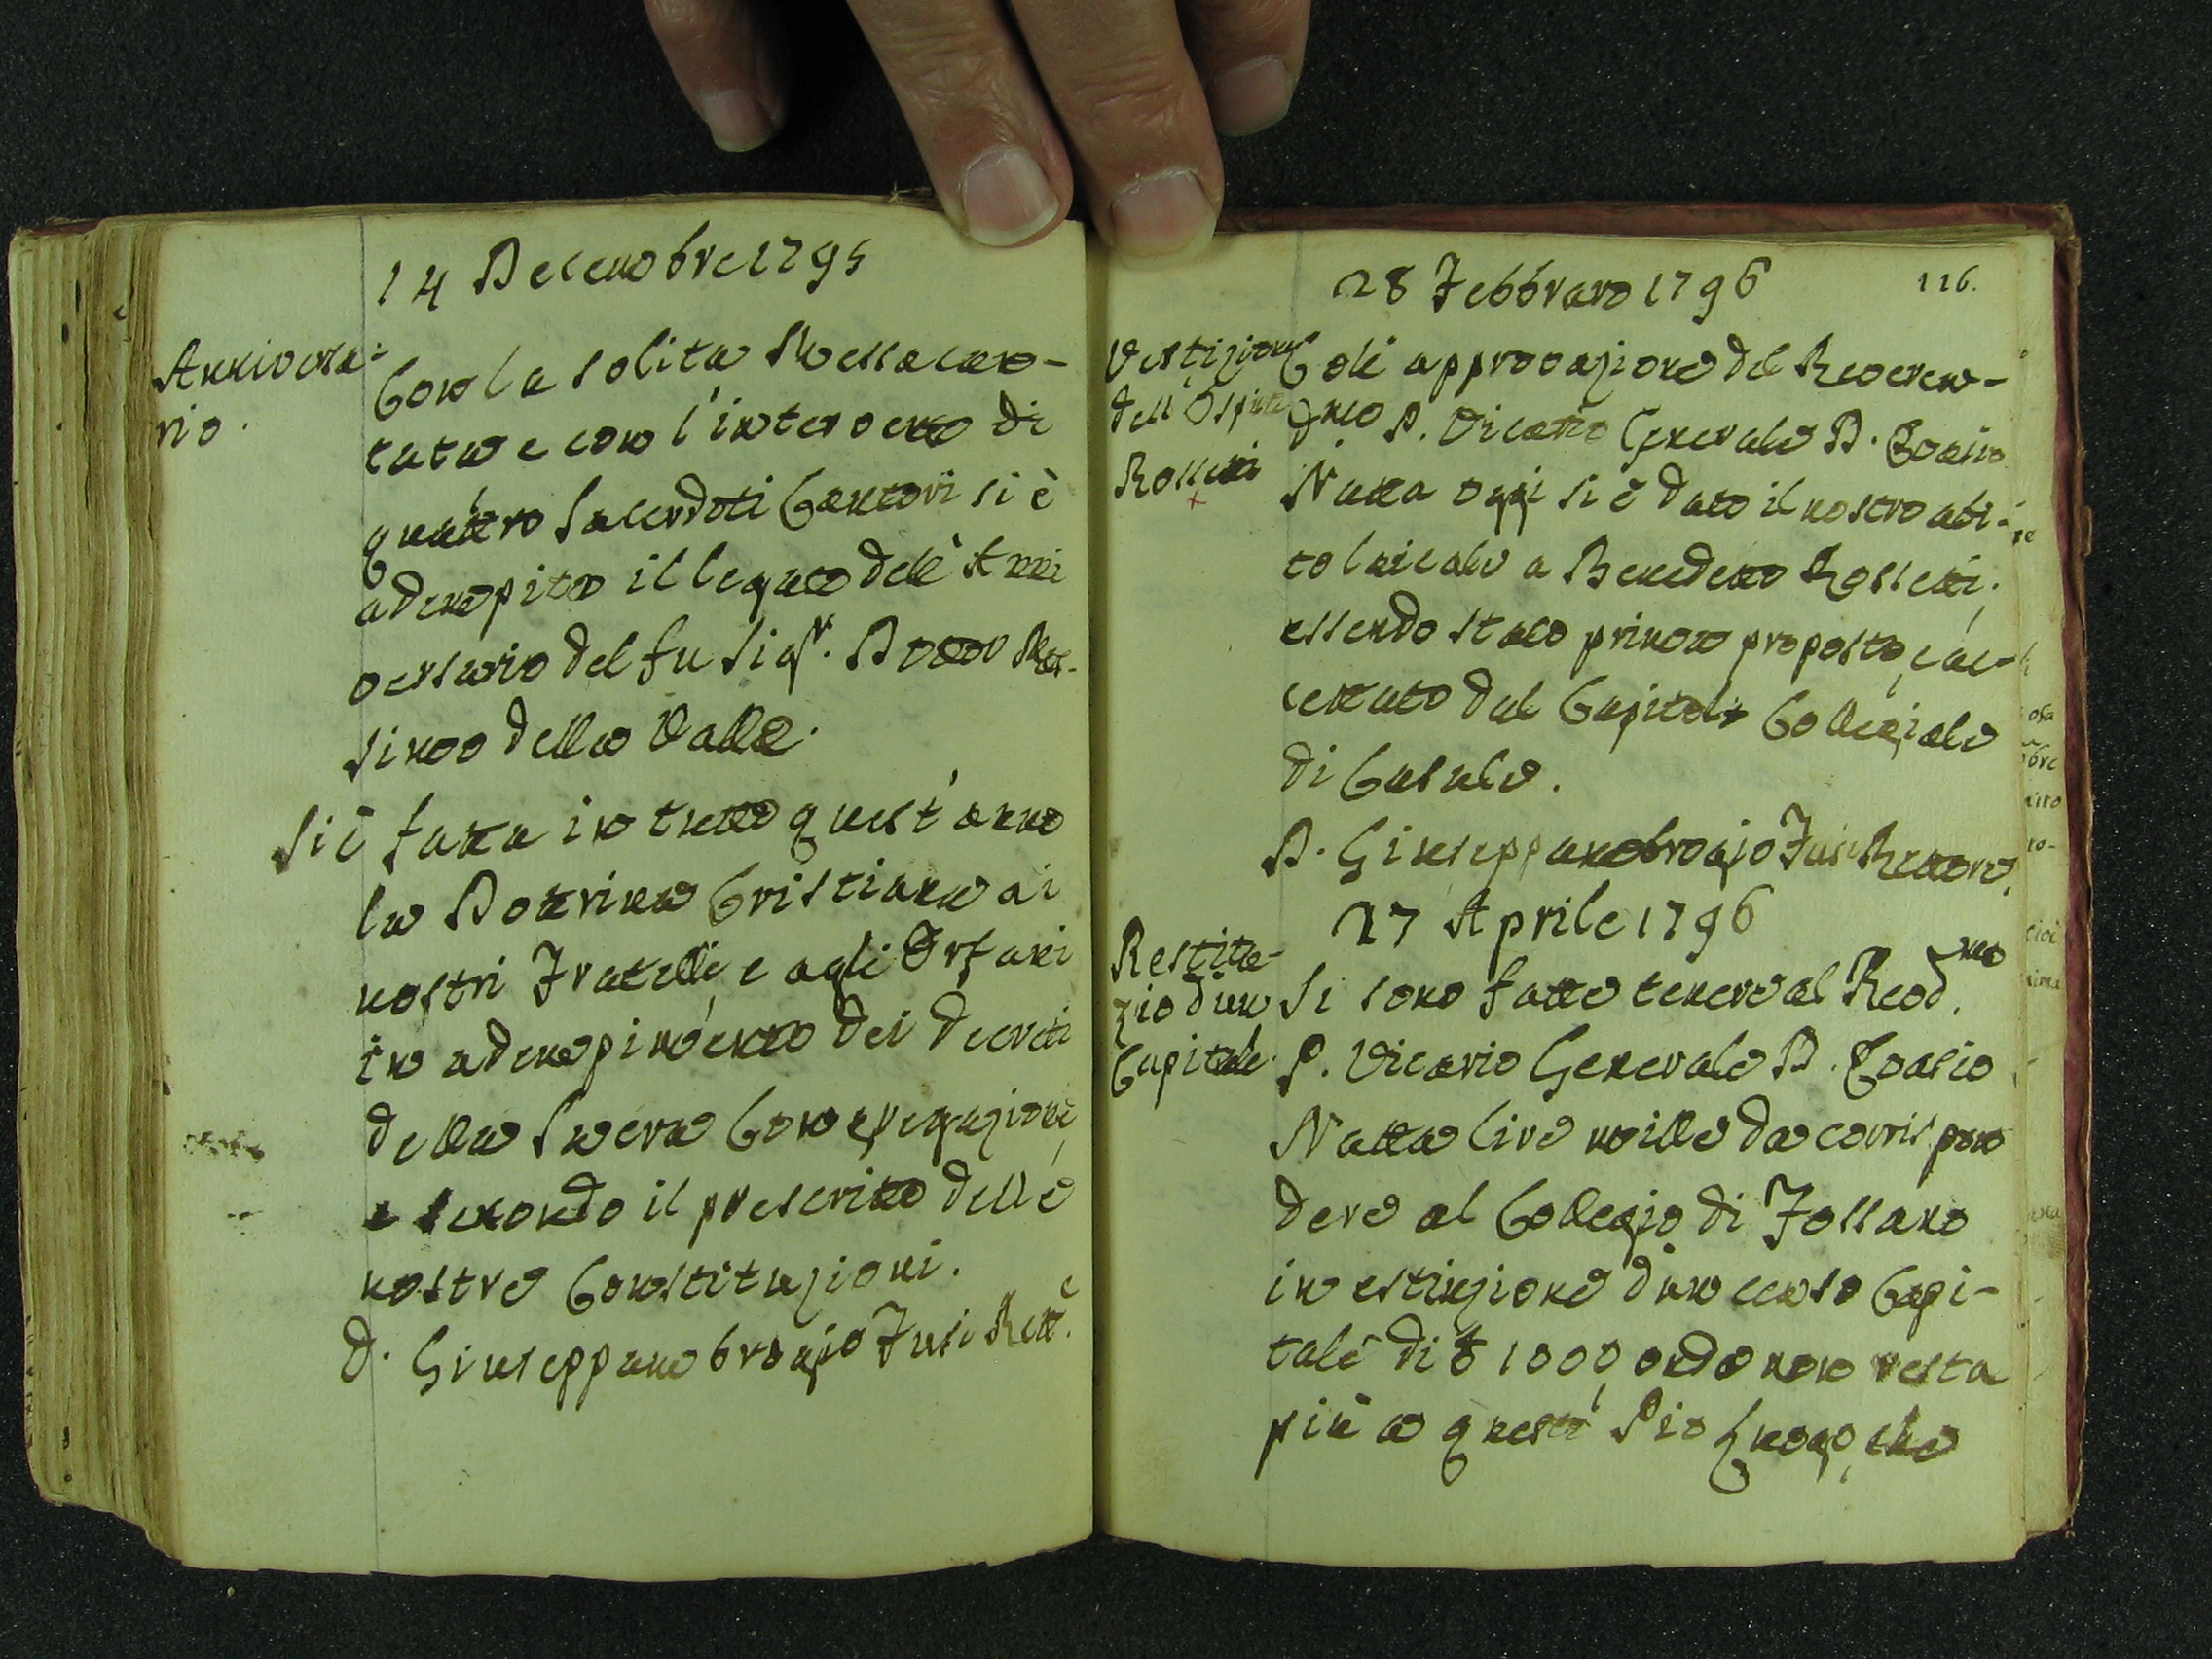 14 Decembre 1795
Anniversa-
rio.
Con la solita Messa can-
tata e con l'intervento di
quattro Sacerdoti Cantori si è
adempito il legato dell'Anni
versario del fu Sigr. Dottor Mas-
simo della Valle.
Si è fatta in tutto quest'anno
la Dottrina Cristiana ai
nostri Fratelli, e agli Orfani
in adempimento dei decreti
della Sacra Congregazione,
secondo il prescritto delle
nostre Constituzioni.
D. Giuseppambrogio Fusi Rett.e
116.
28 Febbraro 1796
Vestizione
dell'Ospite
Rossetti
Coll'approvazione del Reveren-
P. Vicario Generale D.
Natta oggi si è dato il nostro abi-
to laicale a Benedetto Rossetti,
essendo stato prima proposto, e ac-
cettato dal Capitolo Collegiale
di Casale.
D. Giuseppambrogio Fusi Rettore.
27 Aprile 1796
Restitu-
zio d'un
Capitale.
Si sono fatte tenere al Revd.mo
P. Vicario Generale D.
Natta lire mille da corrispon
dere al Collegio di Fossano
in estinzione d'un censo Capi-
tale di £ 1000, onde non resta
più a questo Pio Luogo, che